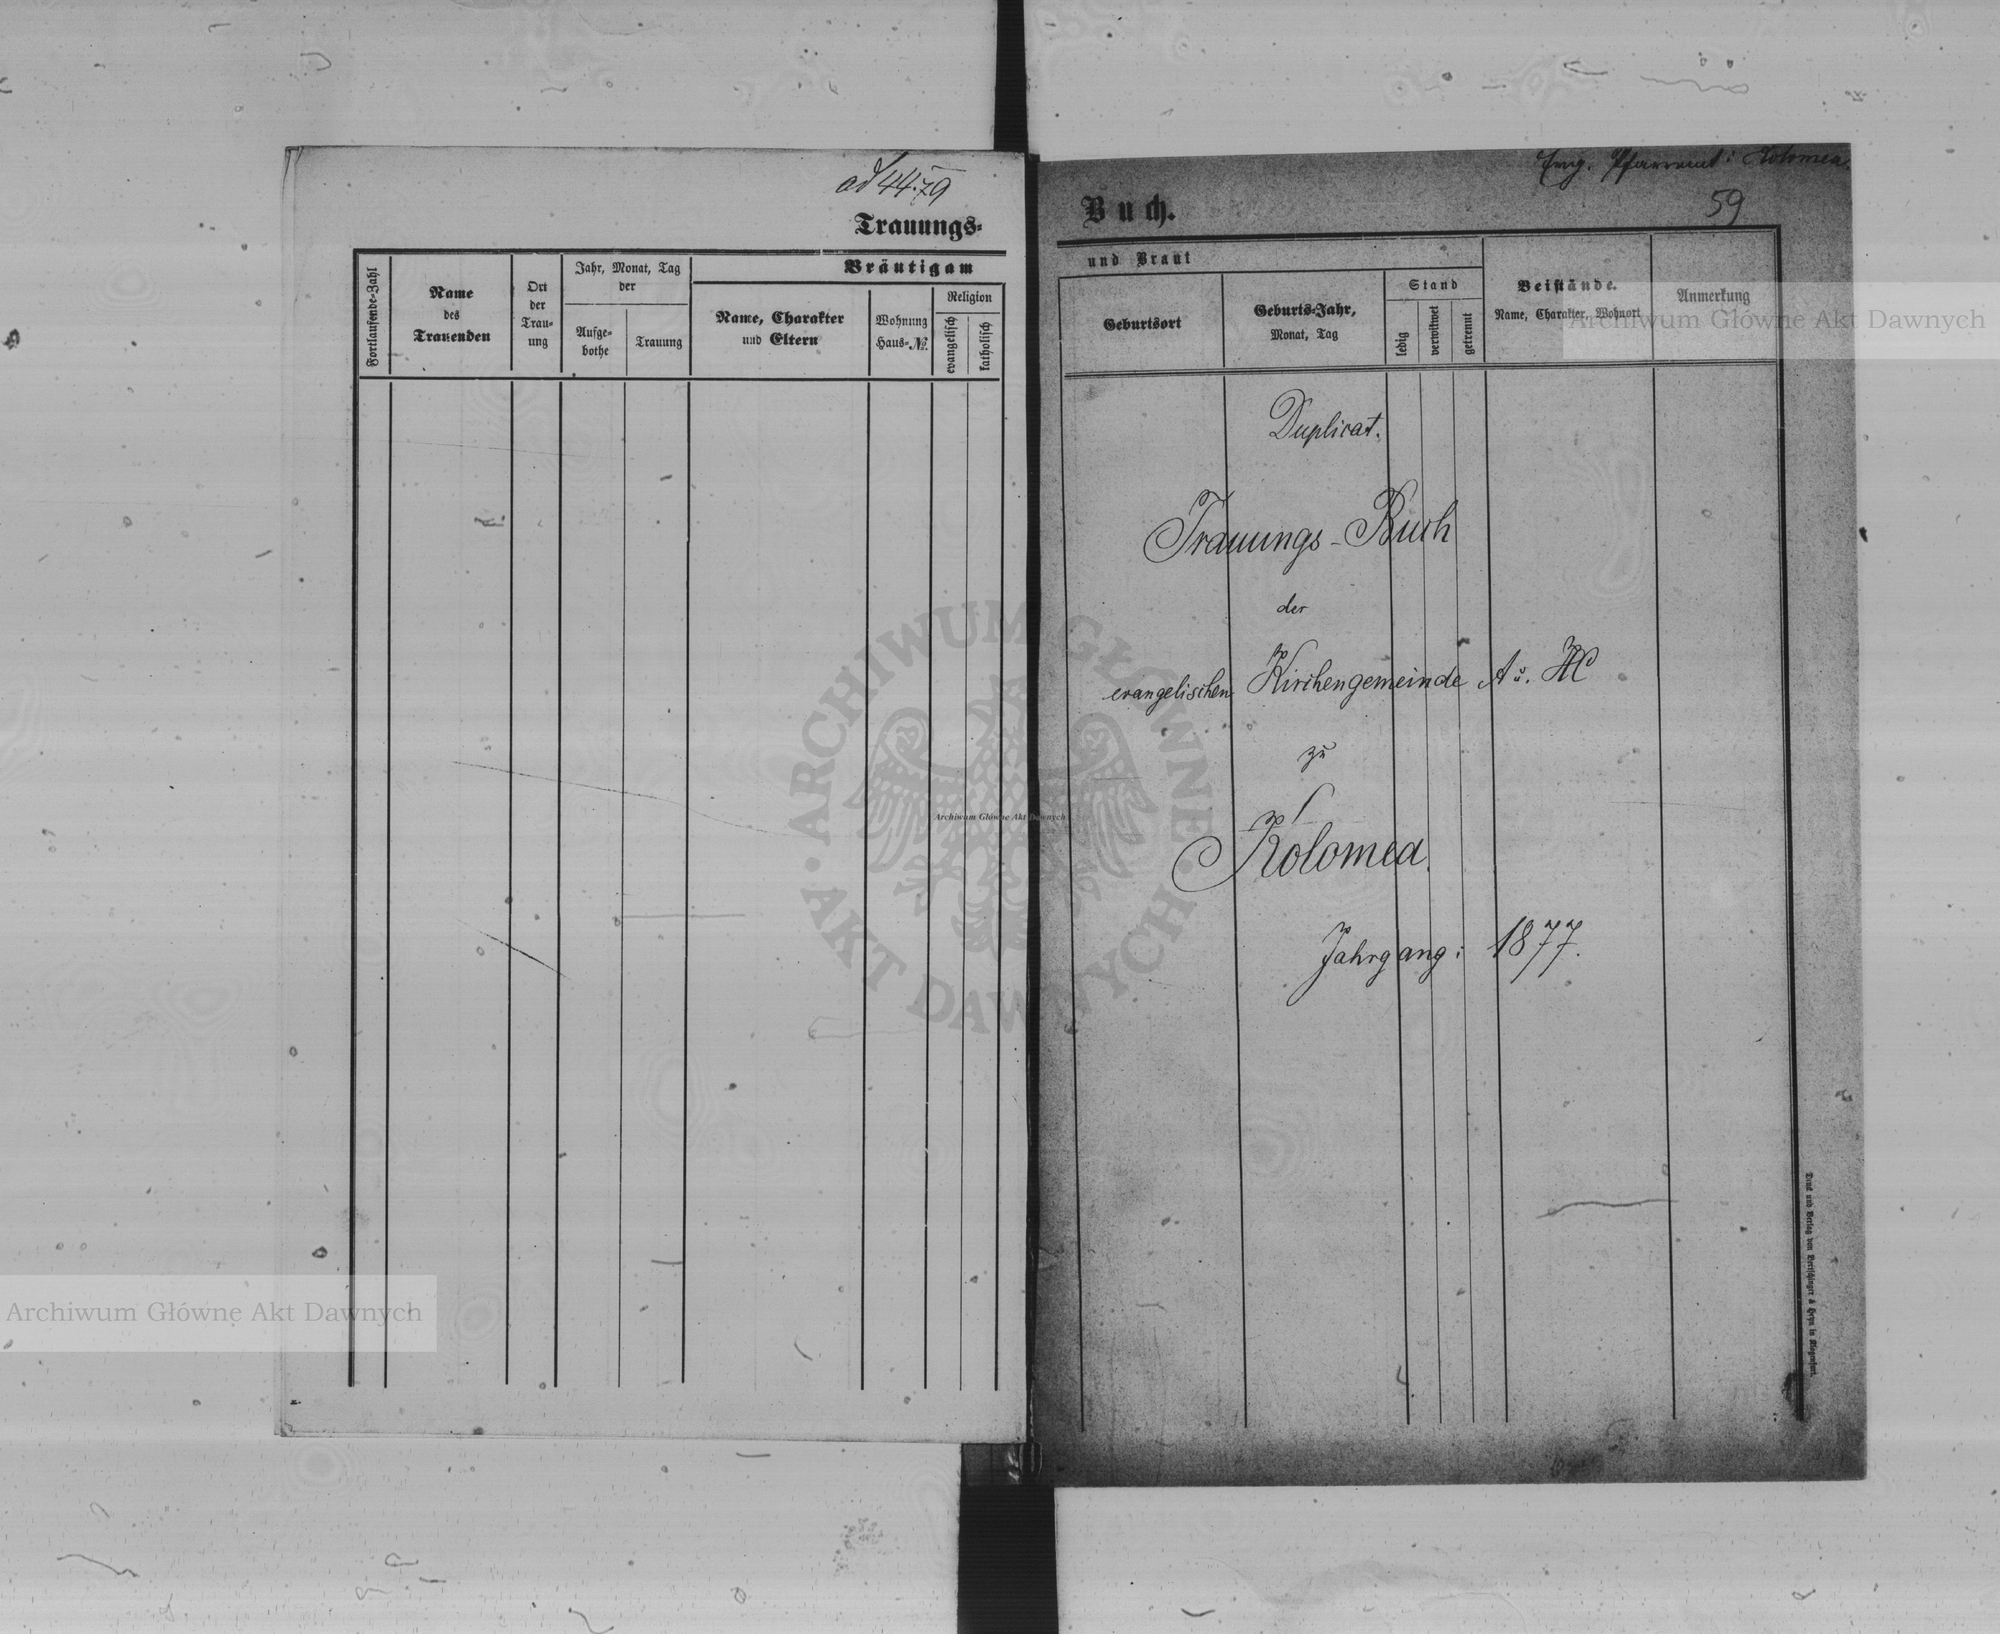 ad 44.79
Trauungs-
Bräutigam
Fortlaufende-Zahl
Name
des
Trauenden
Ort
der
Trau-
ung
Jahr, Monat, Tag
der
Aufge-
bothe
Trauung
Name, Charakter
und Eltern
Wohnung
Haus-№.
Religion
evangelisch
katholisch
Evg. Pfarramt: Kolomea.
59
Buch.
und Braut
Geburtsort
Geburts-Jahr,
Monat, Tag
Stand
ledig
verwitwet
getrennt
Beistände.
Name, Charakter, Wohnort
Anmerkung
Archiwum Główne Akt Dawnych
Duplicat.
Trauungs-Buch
der
evangelischen Kirchengemeinde A u. HC
zu
Kolomea.
Jahrgang: 1877.
ARCHIWUM GŁÓWNE · AKT DAWNYCH ·
Archiwum Główne Akt Dawnych
Archiwum Główne Akt Dawnych
Druck und Verlag von Bertschinger & Heyn in Klagenfurt.